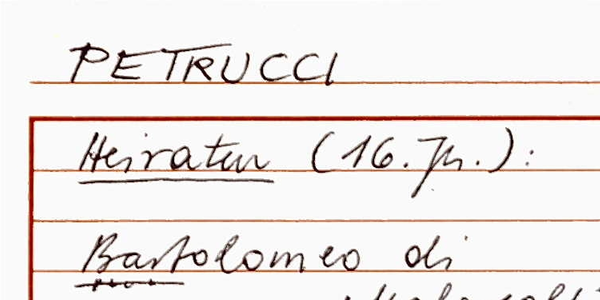 PETRUCCI
Heiraten (16. Jh.):
Bartolomeo di